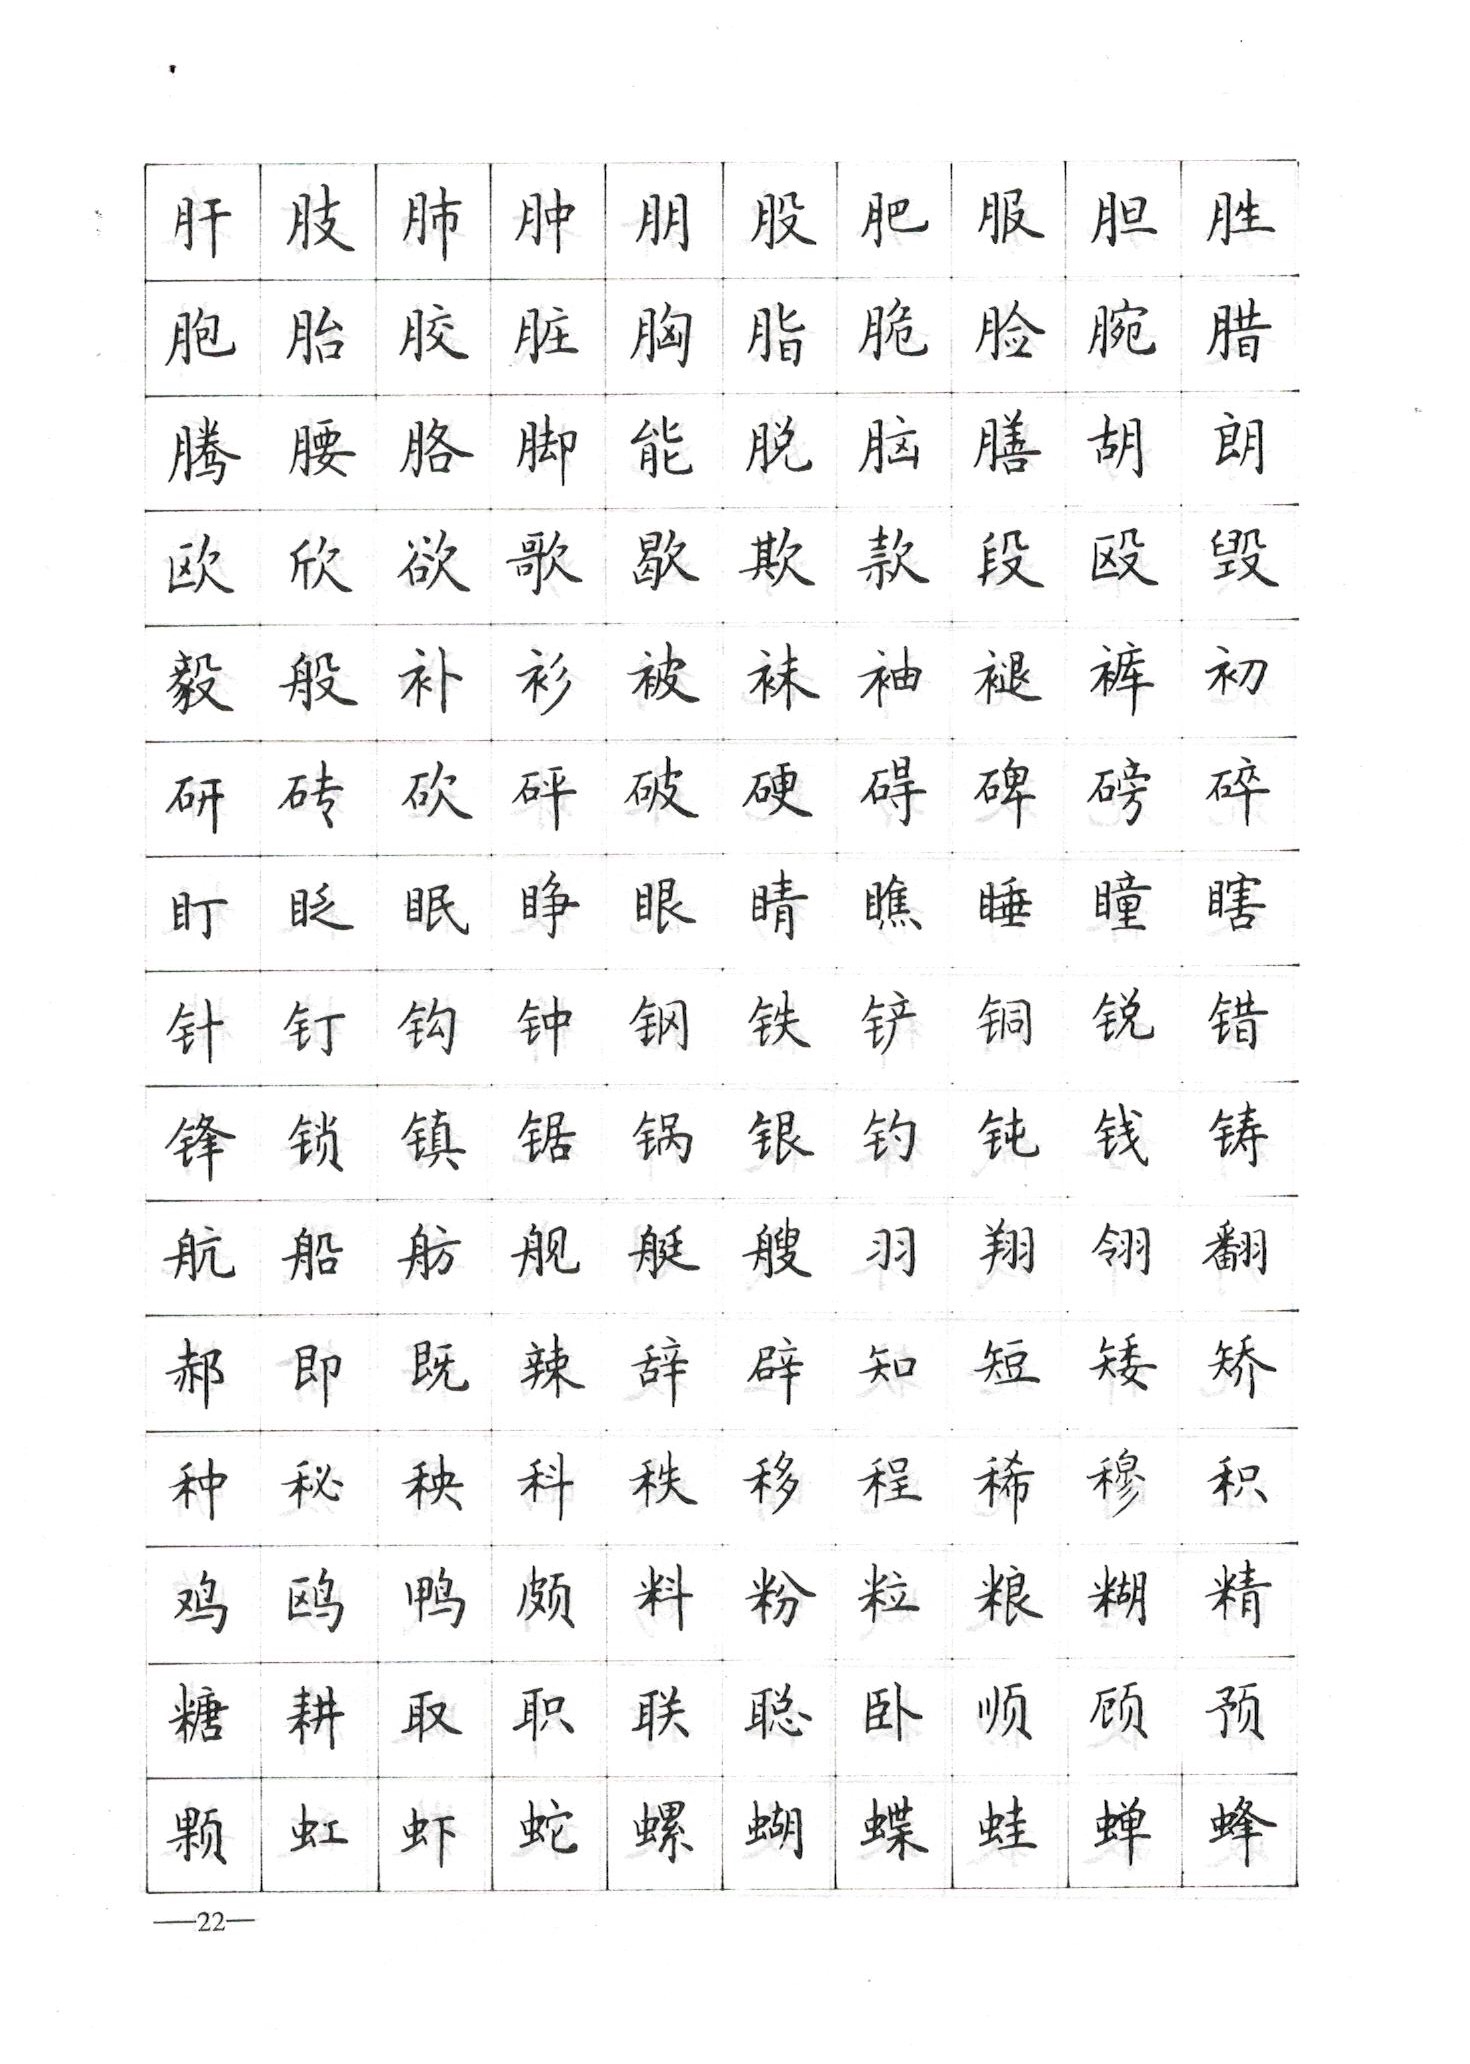 肝肢肺肿朋股肥服胆胜
胞胎胶脏胸脂脆脸腕腊
腾腰胳脚能脱脑膳胡朗
欧欣欲歌歇欺款段殴毁
毅般补衫被袜袖褪裤初
研砖砍砰破硬碍碑磅碎
盯眨眠睁眼睛瞧睡瞳瞎
针钉钩钟钢铁铲铜锐错
锋锁镇锯锅银钓钝钱铸
航船舫舰艇艘羽翔翎翻
郝即既辣辞辟知短矮矫
种秘秧科秩移程稀穆积
鸡鸥鸭颇料粉粒粮糊精
糖耕取职联聪卧顺顾预
颗虹虾蛇螺蝴蝶蛙蝉蜂
—22—